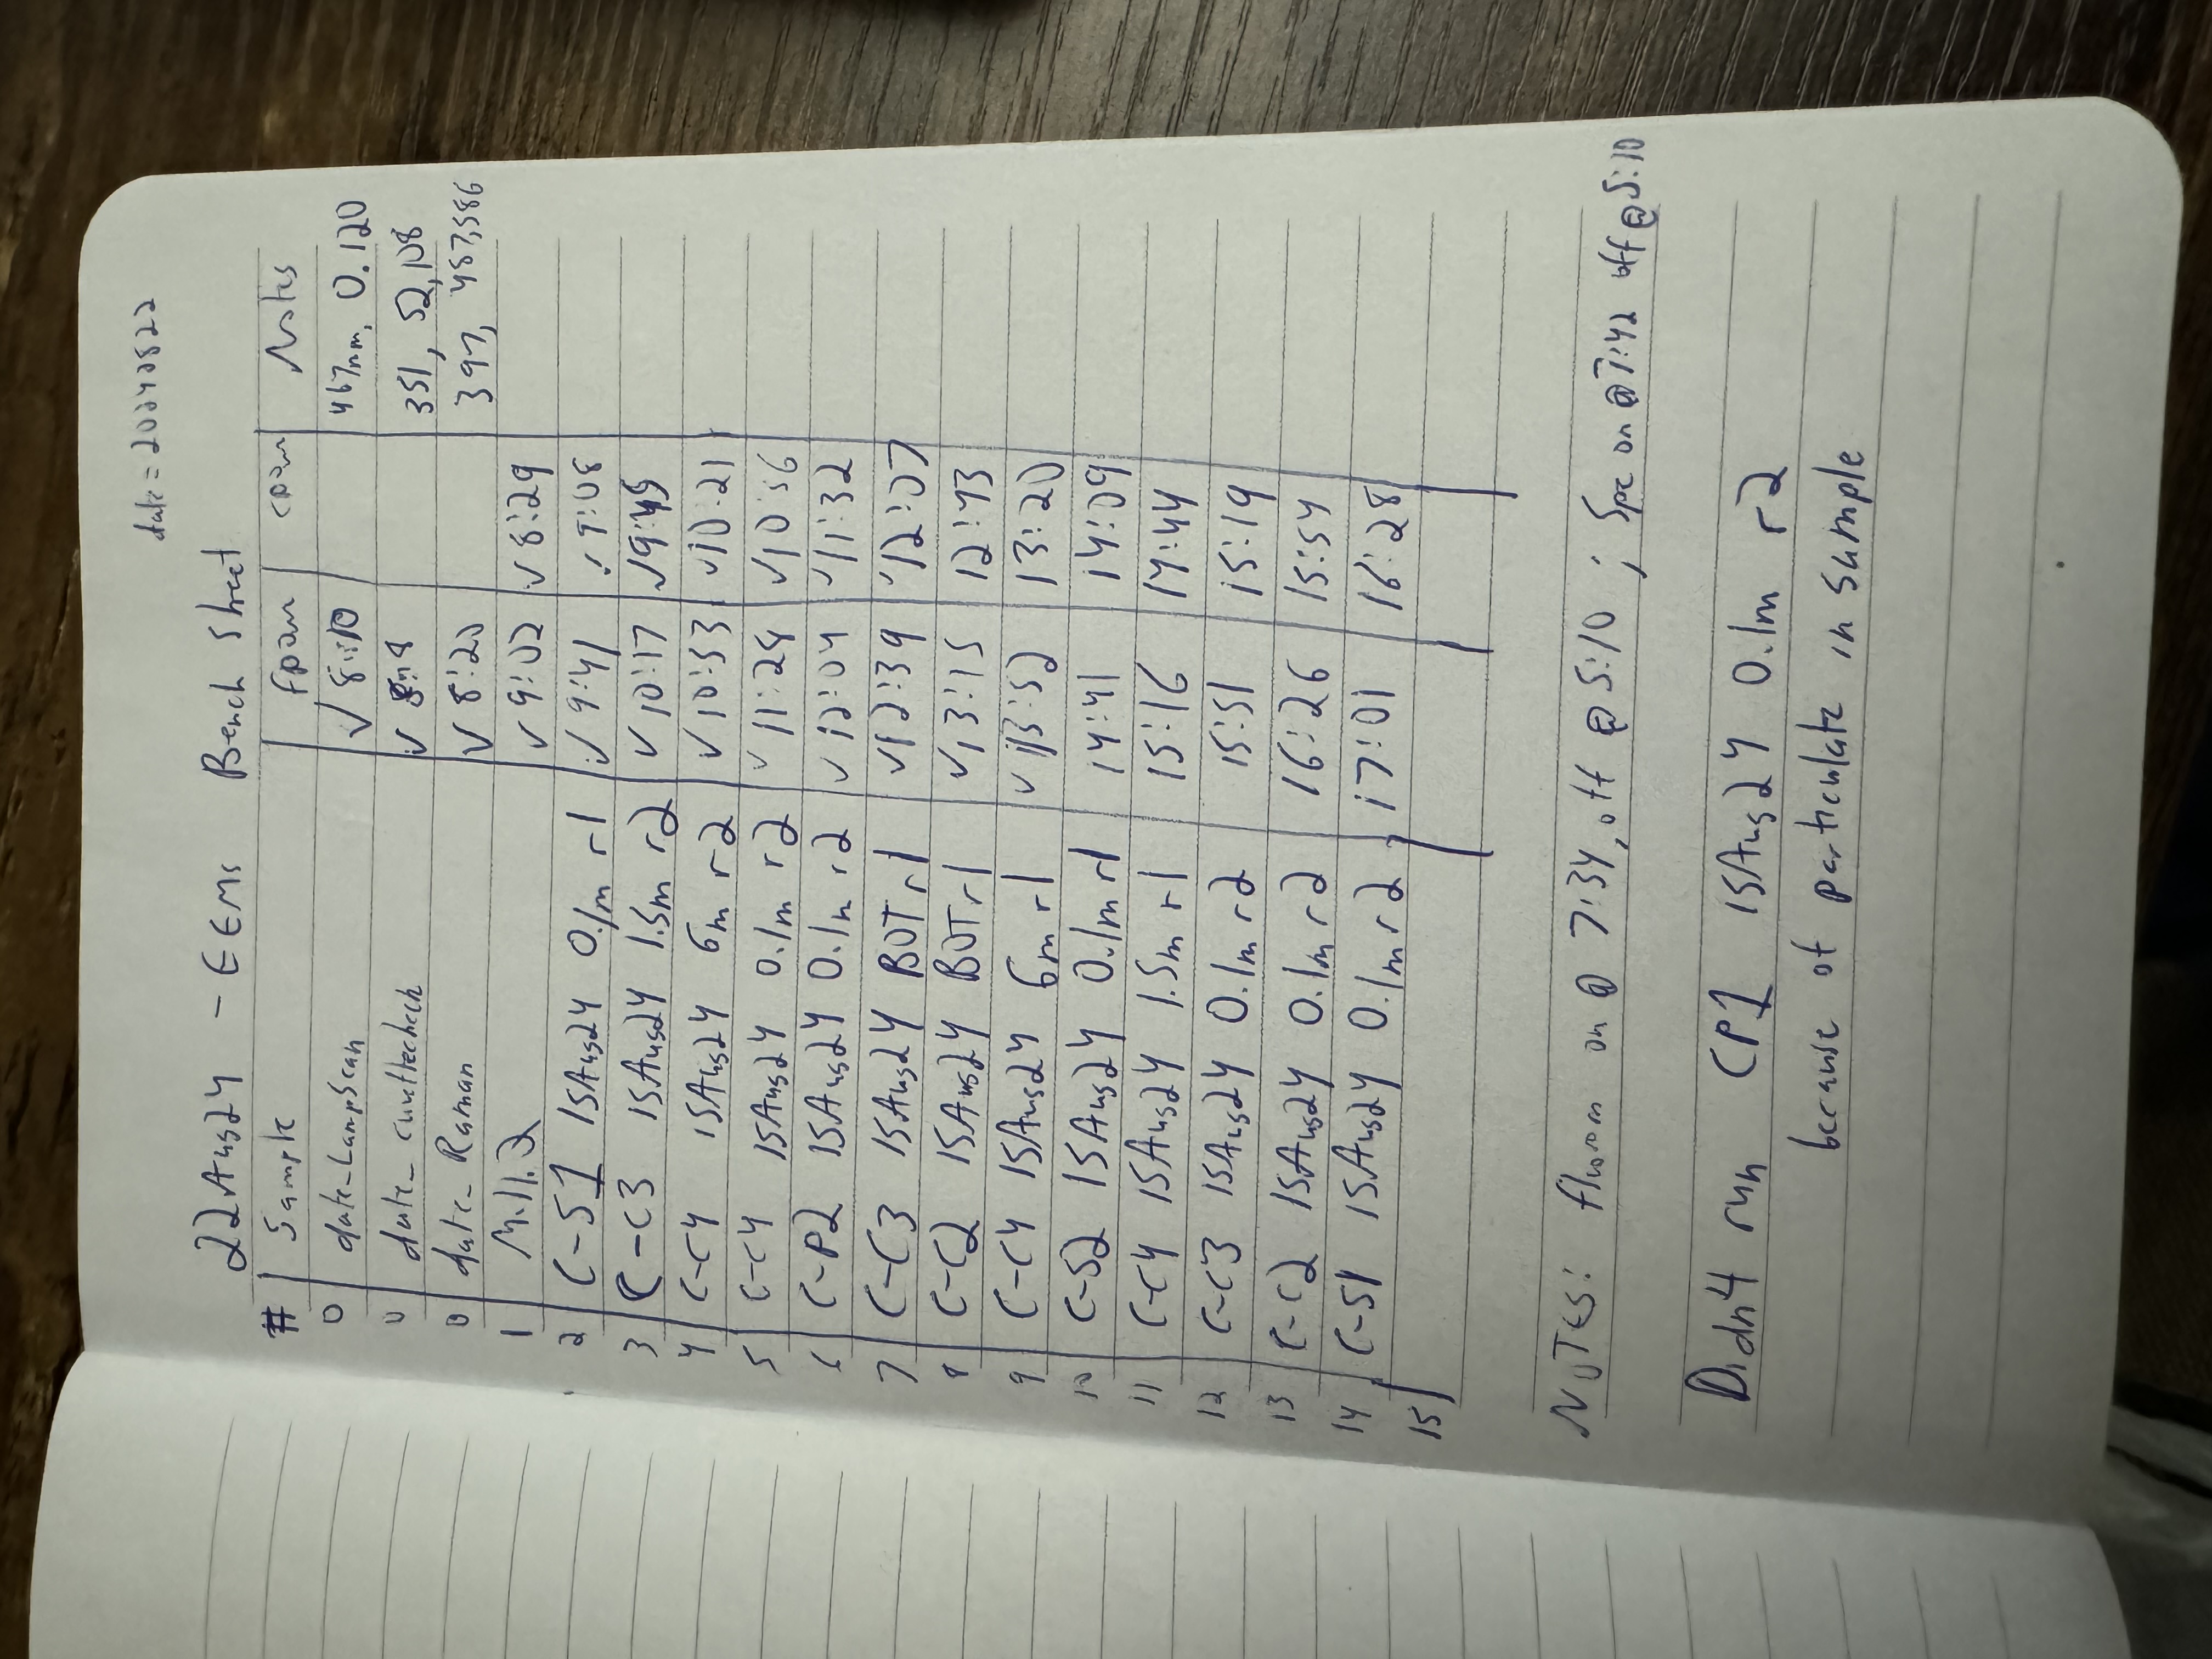 date = 20240822
22Aug24 - EEMs Bench Sheet
# Sample fDOM cDOM Notes
0 date_LampScan ✓ 8:10 467nm, 0.120
0 date_cuvettecheck ✓ 351, 52,108
0 date_Raman ✓ 8:20 397, 487,586
1 Milli Q ✓ 9:02 ✓ 8:29
2 C-S1 15Aug24 0.1m r1 ✓ 9:41 ✓ 9:08
3 C-C3 15Aug24 1.5m r2 ✓ 10:17 ✓ 9:45
4 C-C4 15Aug24 6m r2 ✓ 10:53 ✓ 10:21
5 C-C4 15Aug24 0.1m r2 ✓ 11:28 ✓ 10:56
6 C-P2 15Aug24 0.1m r2 ✓ 12:04 ✓ 11:32
7 C-C3 15Aug24 BOT r1 ✓ 12:39 ✓ 12:07
8 C-C2 15Aug24 BOT r1 ✓ 13:15 12:43
9 C-C4 15Aug24 6m r1 ✓ 13:52 13:20
10 C-S2 15Aug24 0.1m r1 14:41 14:09
11 C-C4 15Aug24 1.5m r1 15:16 14:44
12 C-C3 15Aug24 0.1m r2 15:51 15:19
13 C-C2 15Aug24 0.1m r2 16:26 15:54
14 C-S1 15Aug24 0.1m r2 17:01 16:28
15
NOTES: fluorom on @ 7:34, off @ 5:10 ; Spec on @ 7:42 off @ 5:10
Didn't run CP1 15Aug24 0.1m r2
because of particulate in sample